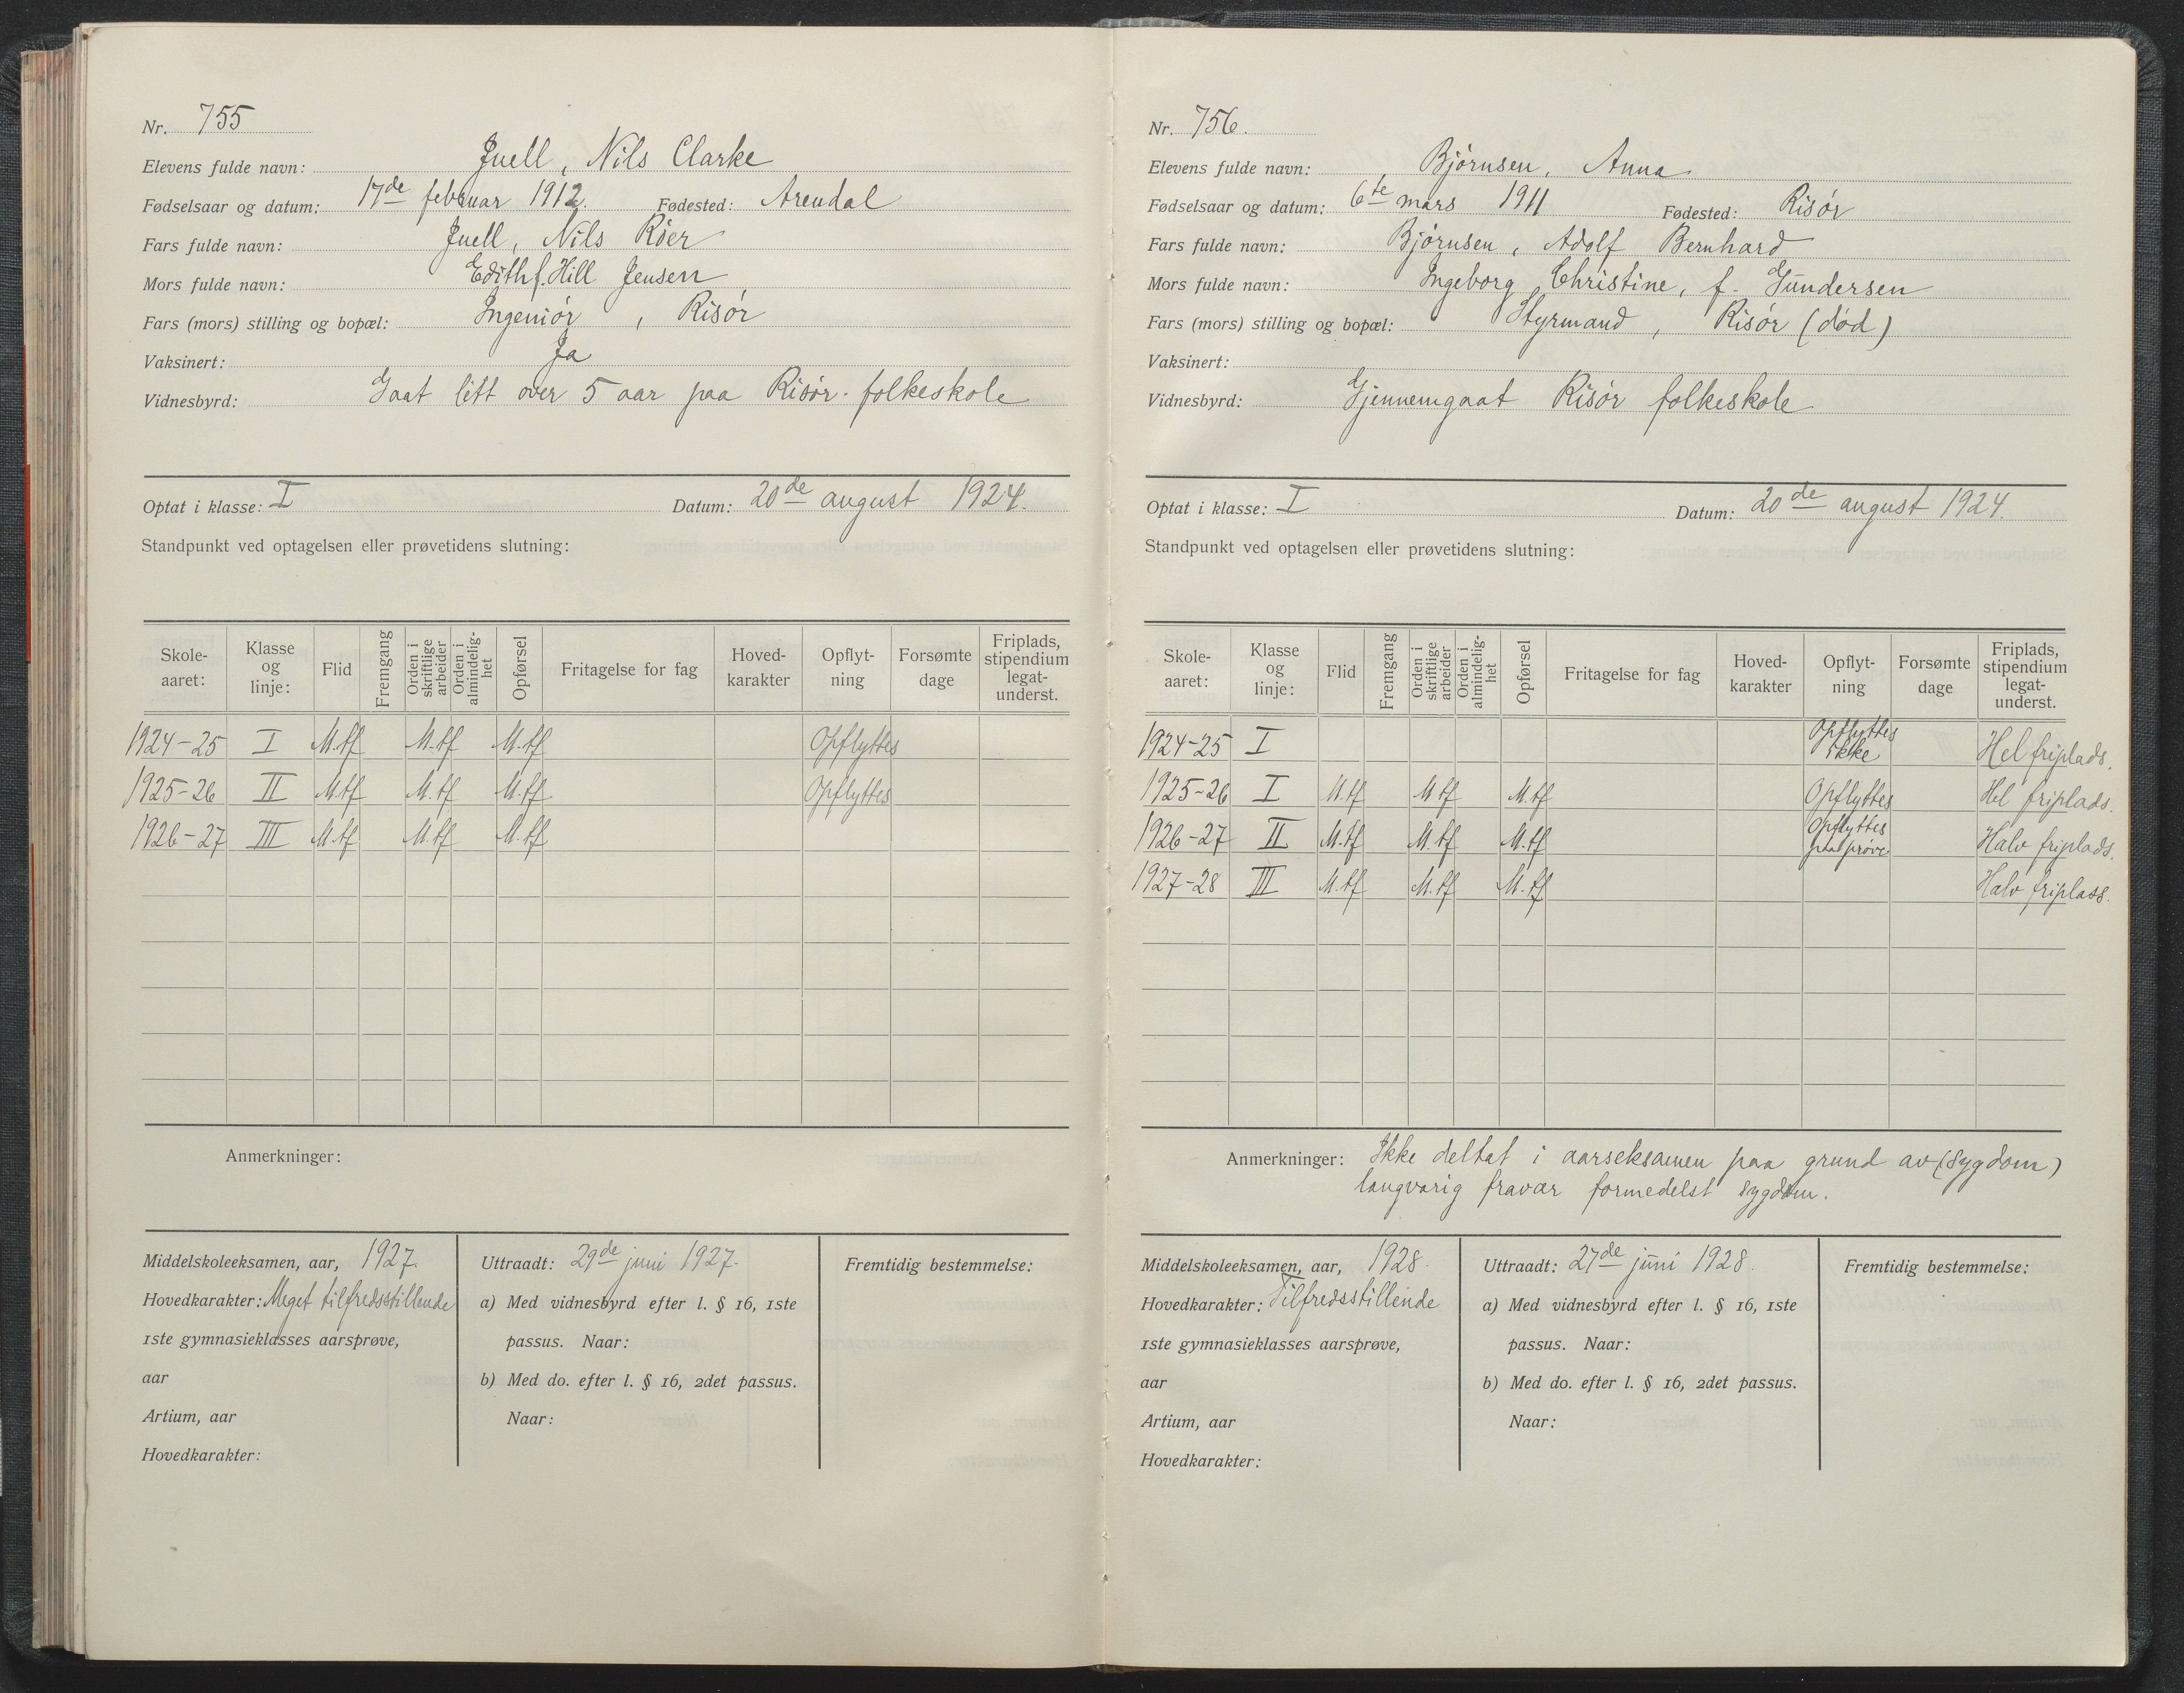 Nr. 755
Elevens fulde navn: Juell, Nils Clarke
Fødselsaar og datum: 17de februar 1912. Fødested: Arendal
Fars fulde navn: Juell, Nils Röer
Mors fulde navn: Edith f. Hill Jensen
Fars (mors) stilling og bopæl: Ingeniør, Risør
Vaksinert: Ja
Vidnesbyrd: Gaat litt over 5 aar paa Risør folkeskole
Optat i klasse: I Datum: 20de august 1924.
Standpunkt ved optagelsen eller prøvetidens slutning:
Skole-aaret: Klasse og linje: Flid Fremgang Orden i skriftlige arbeider Orden i almindelig-het Opførsel Fritagelse for fag Hoved-karakter Opflyt-ning Forsømte dage Friplads, stipendium legat-underst.
1924-25 I M.tf M.tf M.tf Opflyttes
1925-26 II M.tf M.tf M.tf Opflyttes
1926-27 III M.tf M.tf M.tf
Anmerkninger:
Middelskoleeksamen, aar, 1927.
Hovedkarakter: Meget tilfredsstillende
1ste gymnasieklasses aarsprøve,
aar
Artium, aar
Hovedkarakter:
Uttraadt: 29de juni 1927.
a) Med vidnesbyrd efter l. § 16, 1ste
passus. Naar:
b) Med do. efter l. § 16, 2det passus.
Naar:
Fremtidig bestemmelse:
Nr. 756.
Elevens fulde navn: Bjørnsen, Anna
Fødselsaar og datum: 6te mars 1911 Fødested: Risør
Fars fulde navn: Bjørnsen, Adolf Bernhard
Mors fulde navn: Ingeborg Christine, f. Gundersen
Fars (mors) stilling og bopæl: Styrmand, Risør (død)
Vaksinert:
Vidnesbyrd: Gjennemgaat Risør folkeskole
Optat i klasse: I Datum: 20de august 1924.
Standpunkt ved optagelsen eller prøvetidens slutning:
Skole-aaret: Klasse og linje: Flid Fremgang Orden i skriftlige arbeider Orden i almindelig-het Opførsel Fritagelse for fag Hoved-karakter Opflyt-ning Forsømte dage Friplads, stipendium legat-underst.
1924-25 I Opflyttes ikke Hel friplads.
1925-26 I M.tf M.tf M.tf Opflyttes Hel friplads.
1926-27 II M.tf M.tf M.tf Opflyttes paa prøve Halv friplads.
1927-28 III M.tf M.tf M.tf Halv friplass.
Anmerkninger: Ikke deltat i aarseksamen paa grund av (sygdom)
langvarig fravær formedelst sygdom.
Middelskoleeksamen, aar, 1928.
Hovedkarakter: Tilfredsstillende
1ste gymnasieklasses aarsprøve,
aar
Artium, aar
Hovedkarakter:
Uttraadt: 27de juni 1928.
a) Med vidnesbyrd efter l. § 16, 1ste
passus. Naar:
b) Med do. efter l. § 16, 2det passus.
Naar:
Fremtidig bestemmelse: